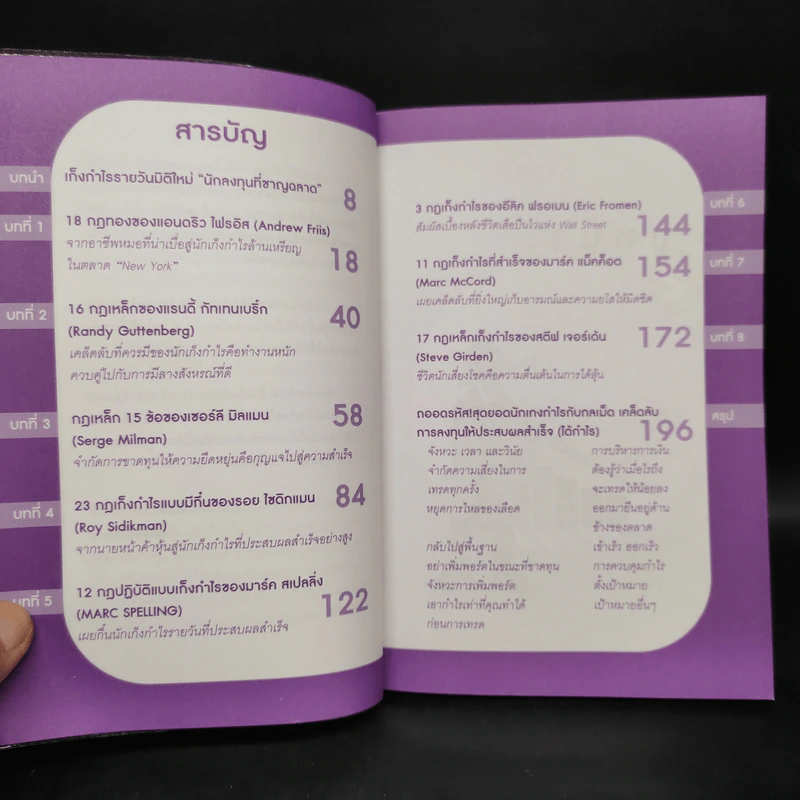 สารบัญ
บทนำ
เก็งกำไรรายวันมิติใหม่ “นักลงทุนที่ชาญฉลาด”
8
บทที่ 1
18 กฎทองของแอนดริว ไฟรอิส (Andrew Friis)
จากอาชีพหมอที่น่าเบื่อสู่นักเก็งกำไรล้านเหรียญ
ในตลาด “New York”
18
บทที่ 2
16 กฎเหล็กของแรนดี้ กัทเทนเบริ์ก
(Randy Guttenberg)
40
เคล็ดลับที่ควรมีของนักเก็งกำไรคือทำงานหนัก
ควบคู่ไปกับการมีลางสังหรณ์ที่ดี
บทที่ 3
กฎเหล็ก 15 ข้อของเซอร์ลี มิลแมน
(Serge Milman)
58
จำกัดการขาดทุนให้ความยืดหยุ่นคือกุญแจไปสู่ความสำเร็จ
บทที่ 4
23 กฎเก็งกำไรแบบมีกึ๋นของรอย ไซดิกแมน
(Roy Sidikman)
84
จากนายหน้าค้าหุ้นสู่นักเก็งกำไรที่ประสบผลสำเร็จอย่างสูง
บทที่ 5
12 กฎปฏิบัติแบบเก็งกำไรของมาร์ค สเปลลิ่ง
(MARC SPELLING)
122
เผยกึ๋นนักเก็งกำไรรายวันที่ประสบผลสำเร็จ
3 กฎเก็งกำไรของอีลิค ฟรอเมน (Eric Fromen)
บทที่ 6
สัมผัสเบื้องหลังชีวิตเสือปืนไวแห่ง Wall Street
144
11 กฎเก็งกำไรที่สำเร็จของมาร์ค แม็คค็อต
(Marc McCord)
154
บทที่ 7
เผยเคล็ดลับที่ยิ่งใหญ่เก็บอารมณ์และความยโสให้มิดชิด
17 กฎเหล็กเก็งกำไรของสตีฟ เจอร์เด้น
(Steve Girden)
172
บทที่ 8
ชีวิตนักเสี่ยงโชคคือความตื่นเต้นในการได้ลุ้น
ถอดรหัส!สุดยอดนักเกงกำไรกับกลเม็ด เคล็ดลับ
การลงทุนให้ประสบผลสำเร็จ (ได้กำไร)
196
สรุป
จังหวะ เวลา และวินัย
จำกัดความเสี่ยงในการ
เทรดทุกครั้ง
หยุดการไหลของเลือด
กลับไปสู่พื้นฐาน
อย่าเพิ่มพอร์ตในขณะที่ขาดทุน
จังหวะการเพิ่มพอร์ต
เอากำไรเท่าที่คุณทำได้
ก่อนการเทรด
การบริหารการเงิน
ต้องรู้ว่าเมื่อไรถึง
จะเทรดให้น้อยลง
ออกมายืนอยู่ด้าน
ข้างของตลาด
เข้าเร็ว ออกเร็ว
การควบคุมกำไร
ตั้งเป้าหมาย
เป้าหมายอื่นๆ